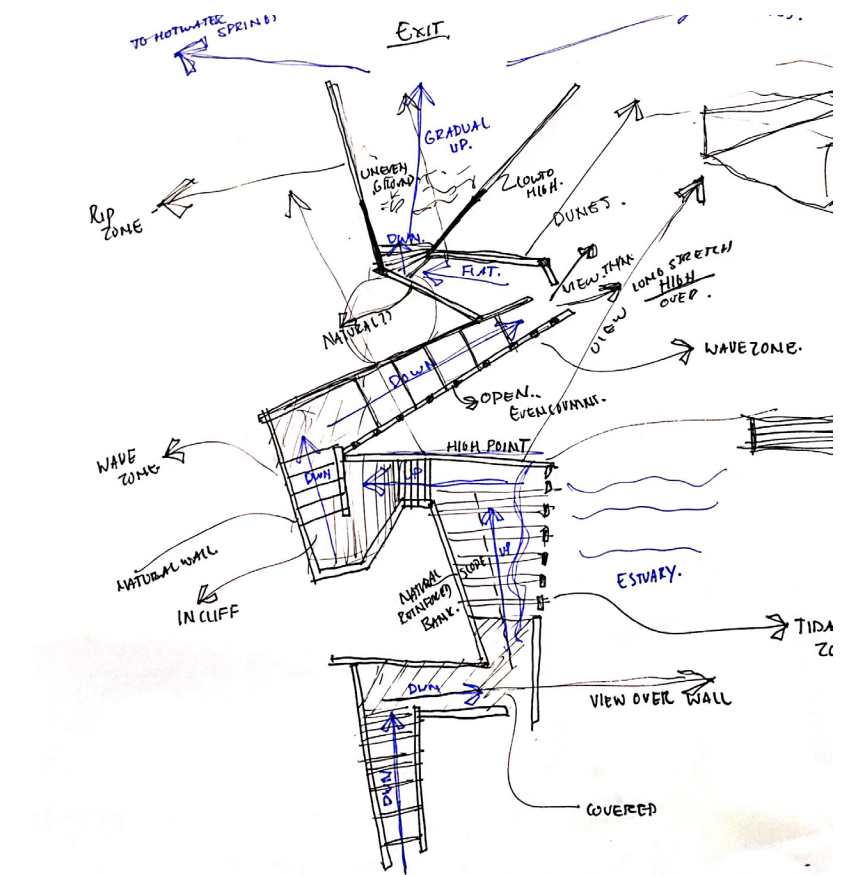 TO HOTWATER
SPRINGS
EXIT
GRADUAL
UP.
UNEVEN
GROUND.
LOW TO
HIGH.
RIP
ZONE
DUNES.
DWN.
FLAT.
VIEW THRU
LONG STRETCH
HIGH
OVER.
NATURAL??
VIEW
WAVE ZONE.
DOWN
OPEN..
EVEN COLUMNS.
HIGH POINT
WAVE
ZONE.
DWN
UP
NATURAL WALL
IN CLIFF
SLOPE
UP
NATURAL
REINFORCED
BANK.
ESTUARY.
TIDA
ZO
DWN
VIEW OVER WALL
DWN
COVERED